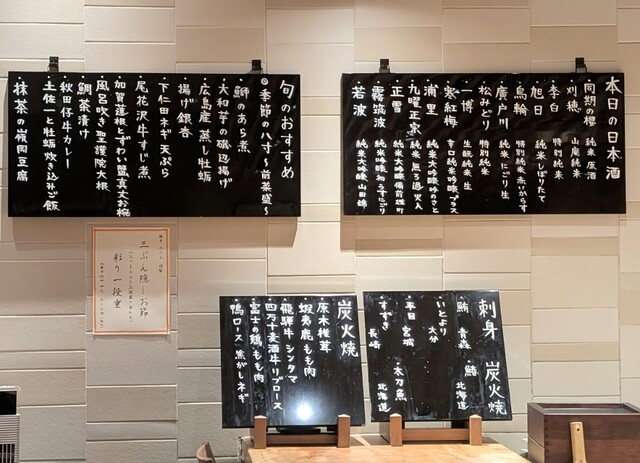 本日の日本酒
同期の桜 純米 原酒
刈穂 山廃純米
李白 特別純米
旭日 純米しぼりたて
鳥輪 特別純米あいからす
廣戸川 純米にごり生
松みどり 特別純米
一博 生酛純米 生
寒紅梅 辛口純米吟醸プラス
浦里 純米吟醸吟のさと
九曜正宗 純米 無ろ過 火入
正雪 純米大吟醸備前雄町
霧筑波 純米吟醸うすにごり
若波 純米大吟醸 山田錦
旬のおすすめ
◎季節の八寸〜前菜盛〜
鰤のあら煮
大和芋の磯辺揚げ
広島産 蒸し牡蛎
揚げ銀杏
下仁田ネギ天ぷら
尾花沢牛すじ煮
加賀蓮根とずわい蟹真丈お椀
風呂吹き聖護院大根
鯛茶漬け
秋田仔牛カレー
土佐一と牡蛎炊き込みご飯
抹茶の嶺岡豆腐
彩り一段重
刺身 炭火焼
鮪 青森 鰆 北海道
いとより 大分
平目 宮城 太刀魚 北海道
すずき 長崎
炭火焼
原木椎茸
蝦夷鹿もも肉
飛騨牛シンタマ
四万十麦酒牛リブロース
富士の鶏もも肉
鴨ロース 焦がしネギ